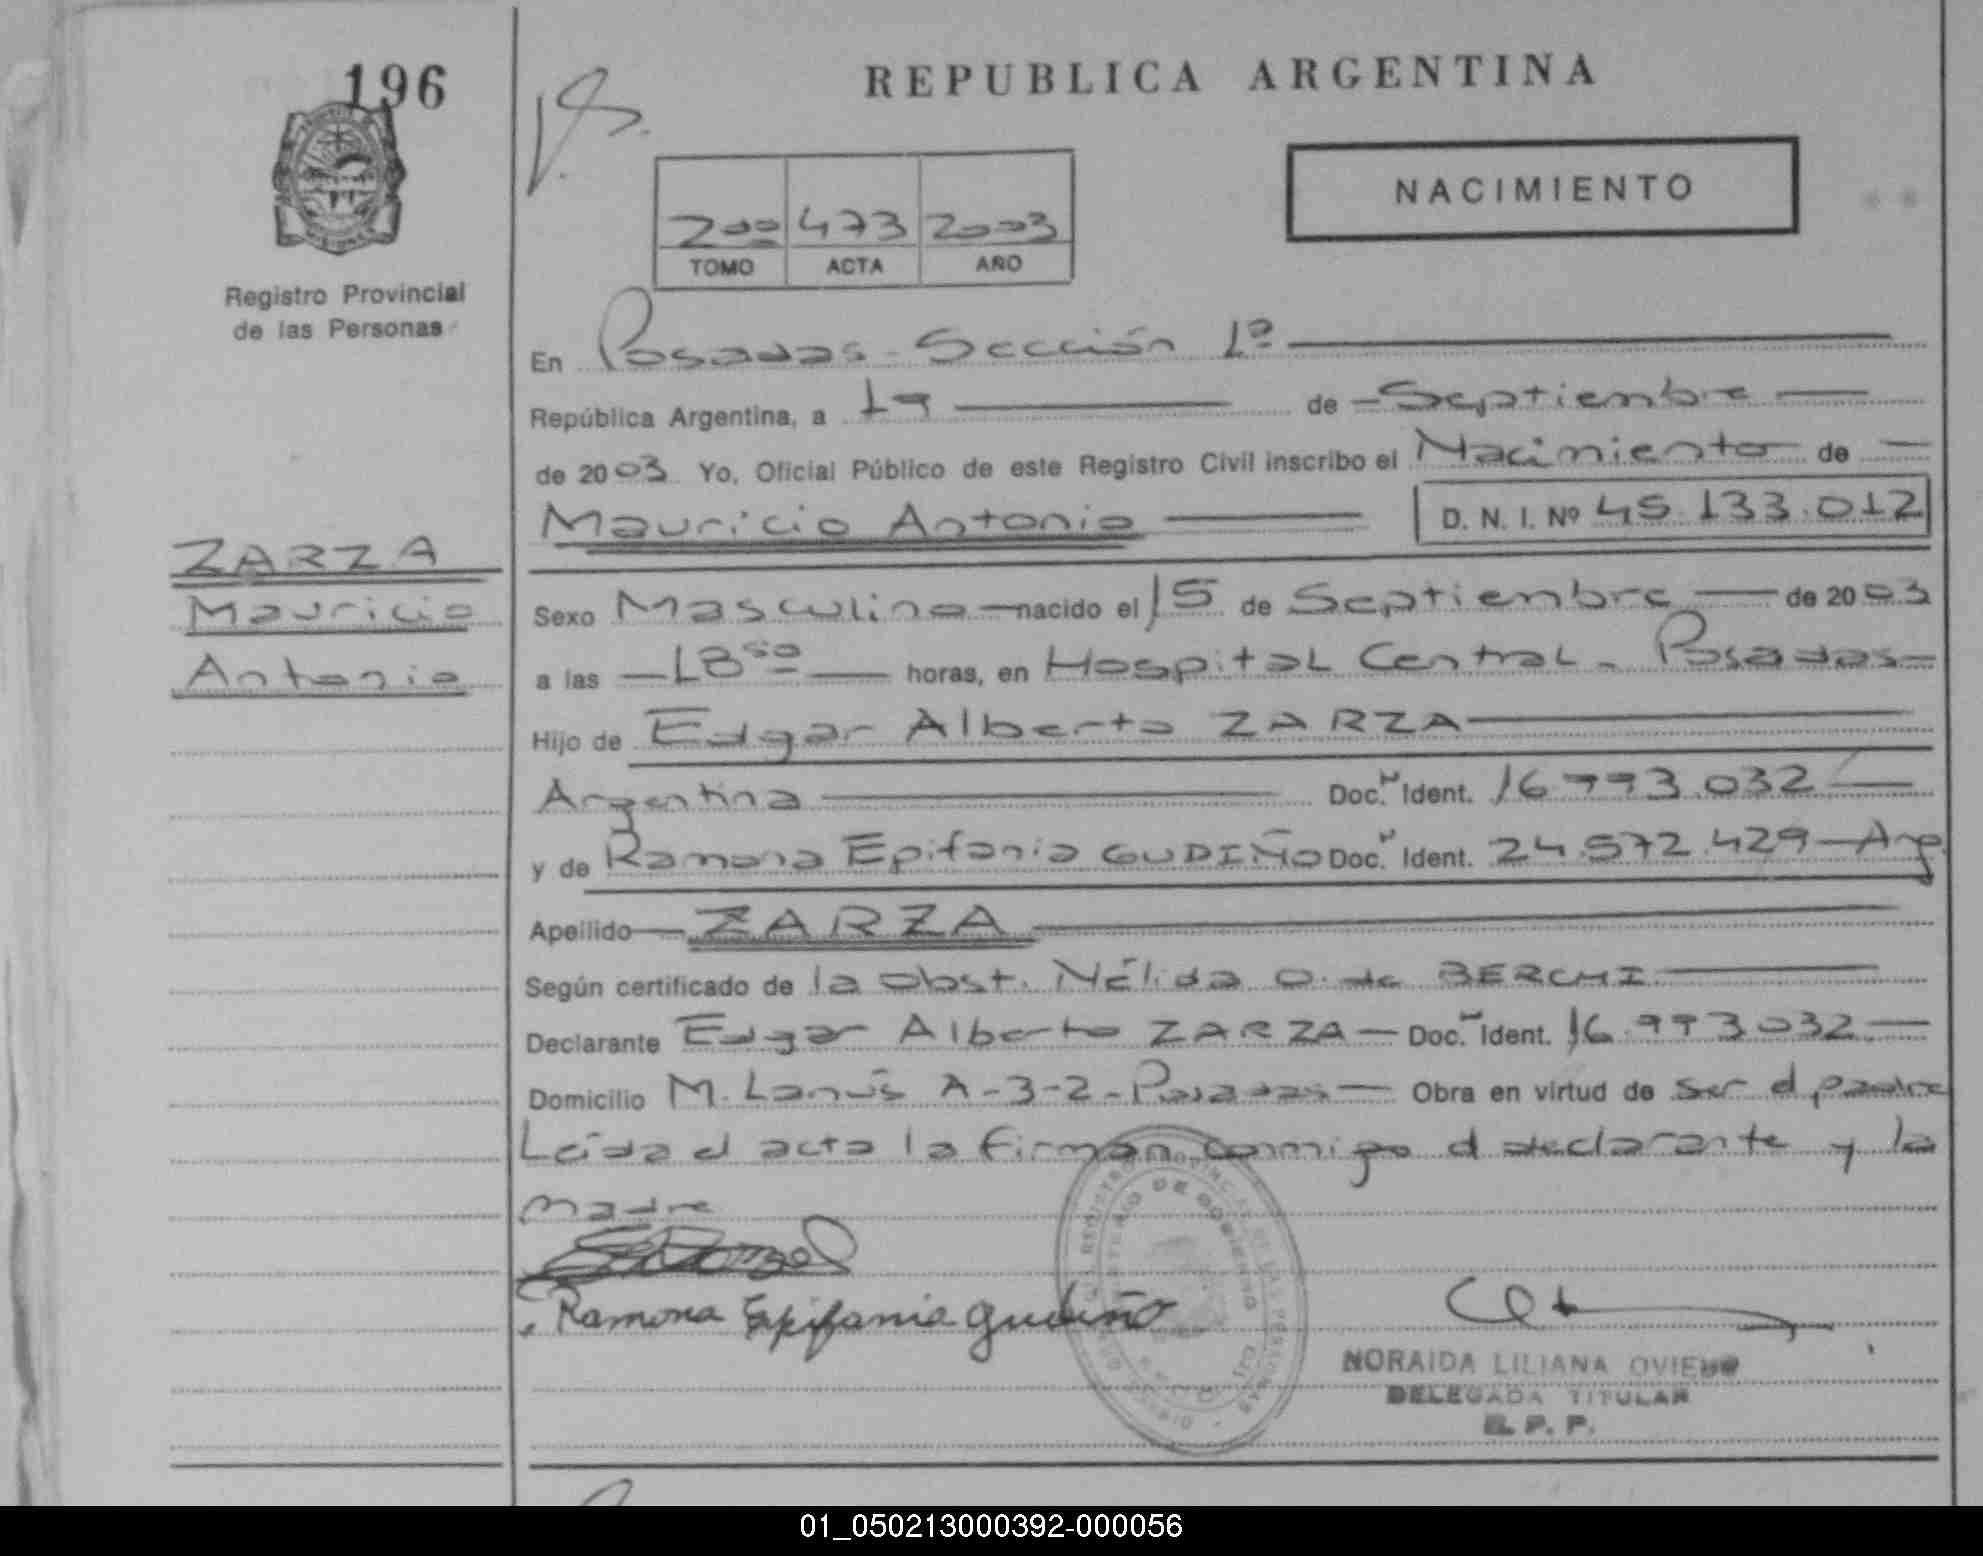 196
REPUBLICA ARGENTINA
NACIMIENTO
200 473 2003
TOMO ACTA AÑO
Registro Provincial
de las Personas
En Posadas - Sección 1ª
República Argentina, a 19 de Septiembre
de 2003 Yo, Oficial Público de este Registro Civil inscribo el Nacimiento de
Mauricio Antonio D. N. I. Nº 45.133.012
ZARZA
Mauricio
Antonio
Sexo Masculino nacido el 15 de Septiembre de 2003
a las 18 50 horas, en Hospital Central - Posadas
Hijo de Edgar Alberto ZARZA
Argentina Doc. Ident. 16.993.032
y de Ramona Epifania GUDIÑO Doc. Ident. 24.572.429 - Arg
Apellido ZARZA
Según certificado de la Obst. Nélida O. de BERCHI
Declarante Edgar Alberto ZARZA - Doc. Ident. 16.993.032
Domicilio M. Lanús A-3-2-Posadas - Obra en virtud de ser el padre
Leída el acta la firman conmigo el declarante y la
madre
Ramona Epifania Gudiño
NORAIDA LILIANA OVIEDO
DELEGADA TITULAR
R. P. P.
01_050213000392-000056